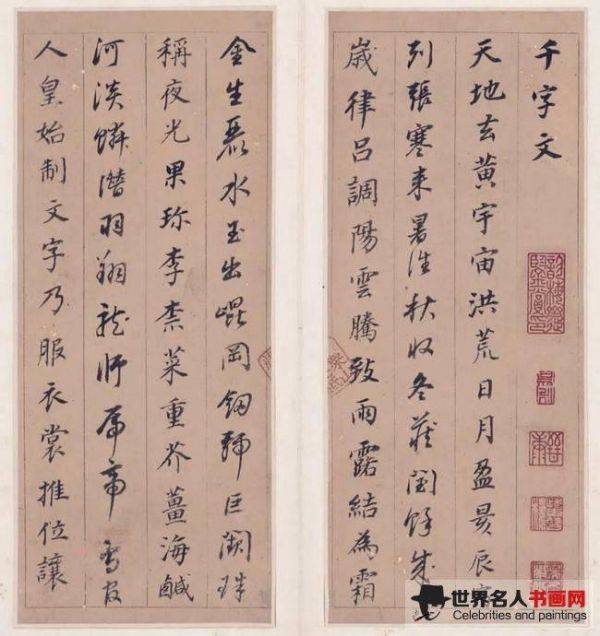 千字文
天地玄黃宇宙洪荒日月盈昃辰
列張寒来暑往秋收冬藏閏餘成
歲律呂調陽雲騰致雨露結為霜
金生麗水玉出崐岡劒號巨闕珠
稱夜光果珍李柰菜重芥薑海鹹
河淡鱗潛羽翔龍師火帝鳥官
人皇始制文字乃服衣裳推位讓
世界名人书画网
Celebrities and paintings